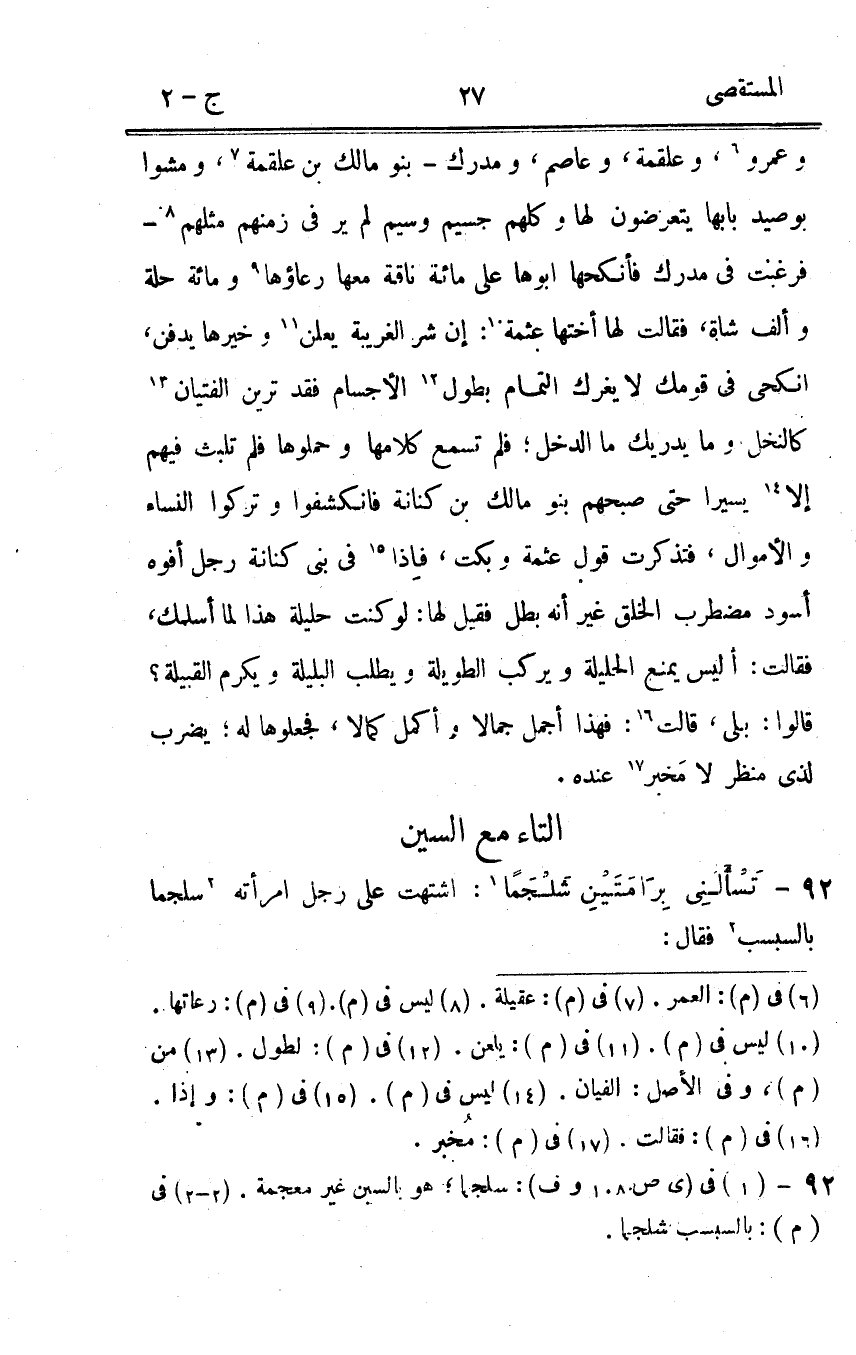 المستقصى ٢٧ ج – ٢
و عمرو٦ ، و علقمة، و عاصم، و مدرك – بنو مالك بن علقمة٧ ، و مشوا
بوصيد بابها يتعرضون لها و كلهم جسيم وسيم لم ير فى زمنهم مثلهم٨ –
فرغبت فى مدرك فأنكحها ابوها على مائة ناقة معها رعاؤها٩ و مائة حلة
و ألف شاة، فقالت لها أختها عثمة١٠: إن شر الغريبة يعلن١١ و خيرها يدفن،
انكحى فى قومك لا يغرك التمام بطول١٢ الأجسام فقد ترين الفتيان١٣
كالنخل و ما يدريك ما الدخل؛ فلم تسمع كلامها و حملوها فلم تلبث فيهم
إلا١٤ يسيرا حتى صبحهم بنو مالك بن كنانة فانكشفوا و تركوا النساء
و الأموال ، فتذكرت قول عثمة و بكت ، فإذا١٥ فى بنى كنانة رجل أفوه
أسود مضطرب الخلق غير أنه بطل فقيل لها: لوكنت حليلة هذا لما أسلمك،
فقالت: أ ليس يمنع الحليلة و يركب الطويلة و يطلب البليلة و يكرم القبيلة؟
قالوا: بلى ، قالت١٦: فهذا أجمل جمالا و أكمل كمالا ، فجعلوها له ؛ يضرب
لذى منظر لا مَخبر١٧ عنده .
التاء مع السين
٩٢ – تَسْأَلُنِى بِرَامَتَيْنِ شَلْجَمًا١ : اشتهت على رجل امرأته ٢سلجما
بالسبسب٢ فقال :
(٦) فى (م): العمر . (٧) فى (م): عقيلة . (٨) ليس فى (م).(٩) فى (م): رعاتها .
(١٠) ليس فى ( م ) . (١١) فى ( م ) : يلعن . (١٢) فى ( م ) : لطول . (١٣) من
( م ) ، و فى الأصل : الفيان . (١٤) ليس فى ( م ) . (١٥) فى ( م ) : و إذا .
(١٦) فى ( م ) : فقالت . (١٧) فى ( م ) : مُخبر .
٩٢ – ( ١ ) فى (ى ص ١٠٨ و ف) : سلجما ؛ هو بالسين غير معجمة . (٢–٢) فى
( م ) : بالسبسب شلجما .